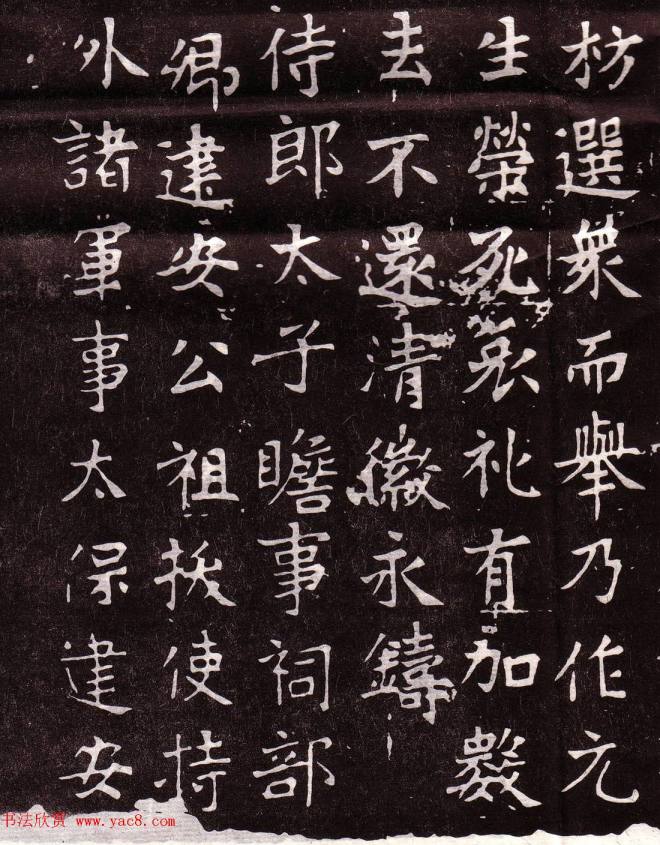 枋選衆而舉乃作元
生榮死哀礼有加數
去不還清徽永鑄
侍郎太子瞻事祠部
卿建安公祖扶使持
外諸軍事太保建安
书法欣赏 www.yac8.com